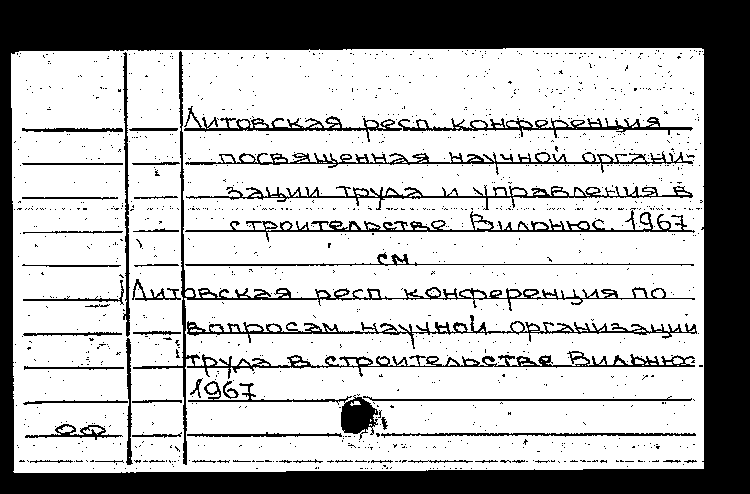 Литовская респ. конференция,
посвященная научной органи-
зации труда и управления в
строительстве Вильнюс. 1967
см.
Литовская респ. конференция по
вопросам научной организации
труда в строительстве Вильнюс
1967
ОФ